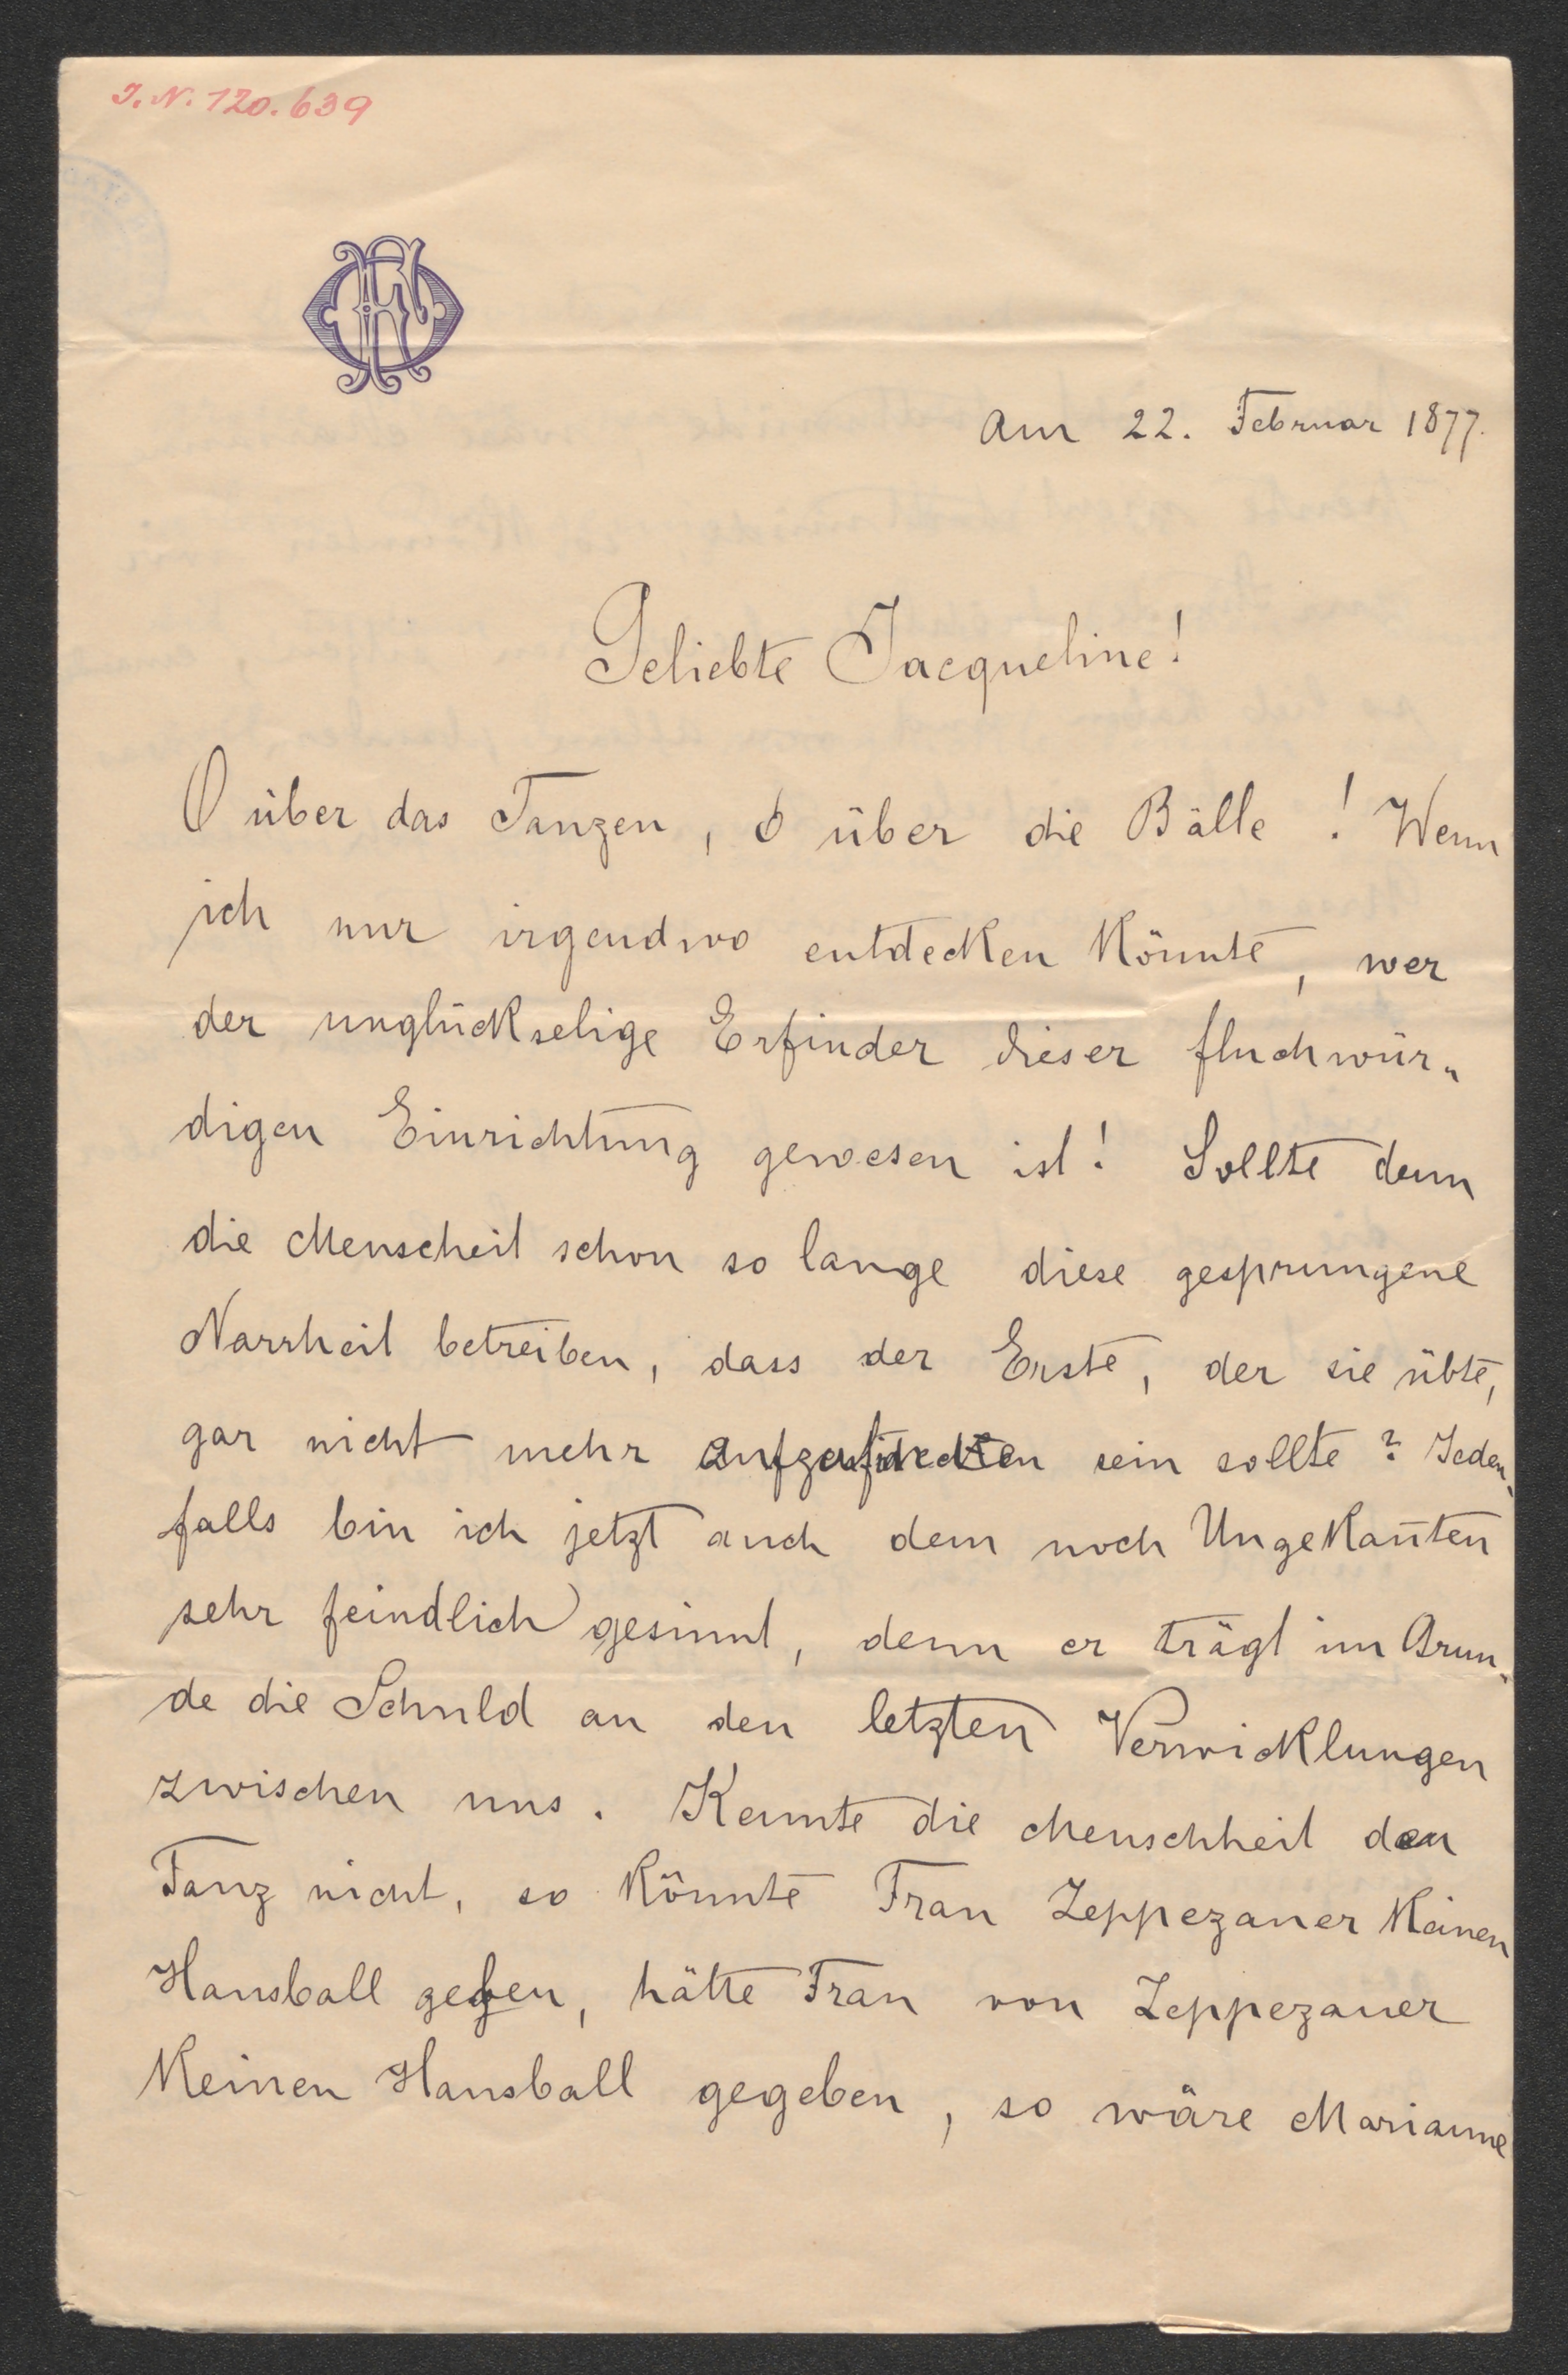 J. N. 120.639
Am 22. Februar 1877.
Geliebte Jacqueline!
O über das Tanzen, o über die Bälle! Wenn
ich nur irgendwo entdecken könnte, wer
der unglückselige Erfinder dieser fluchwür„
digen Einrichtung gewesen ist! Sollte denn
die Menscheit schon so lange diese gesprungene
Narrheit betreiben, dass der Erste, der sie übte,
gar nicht mehr sein sollte? Jeden„
falls bin ich jetzt auch dem noch Ungekañten
sehr feindlich gesinnt, denn er trägt im Grun„
de die Schuld an den letzten Verwicklungen
zwischen uns. Kennte die Menschheit den
Tanz nicht, so könnte Frau Zeppezauer keinen
Hausball geben, hätte Frau von Zeppezauer
keinen Hausball gegeben, so wäre Marianne